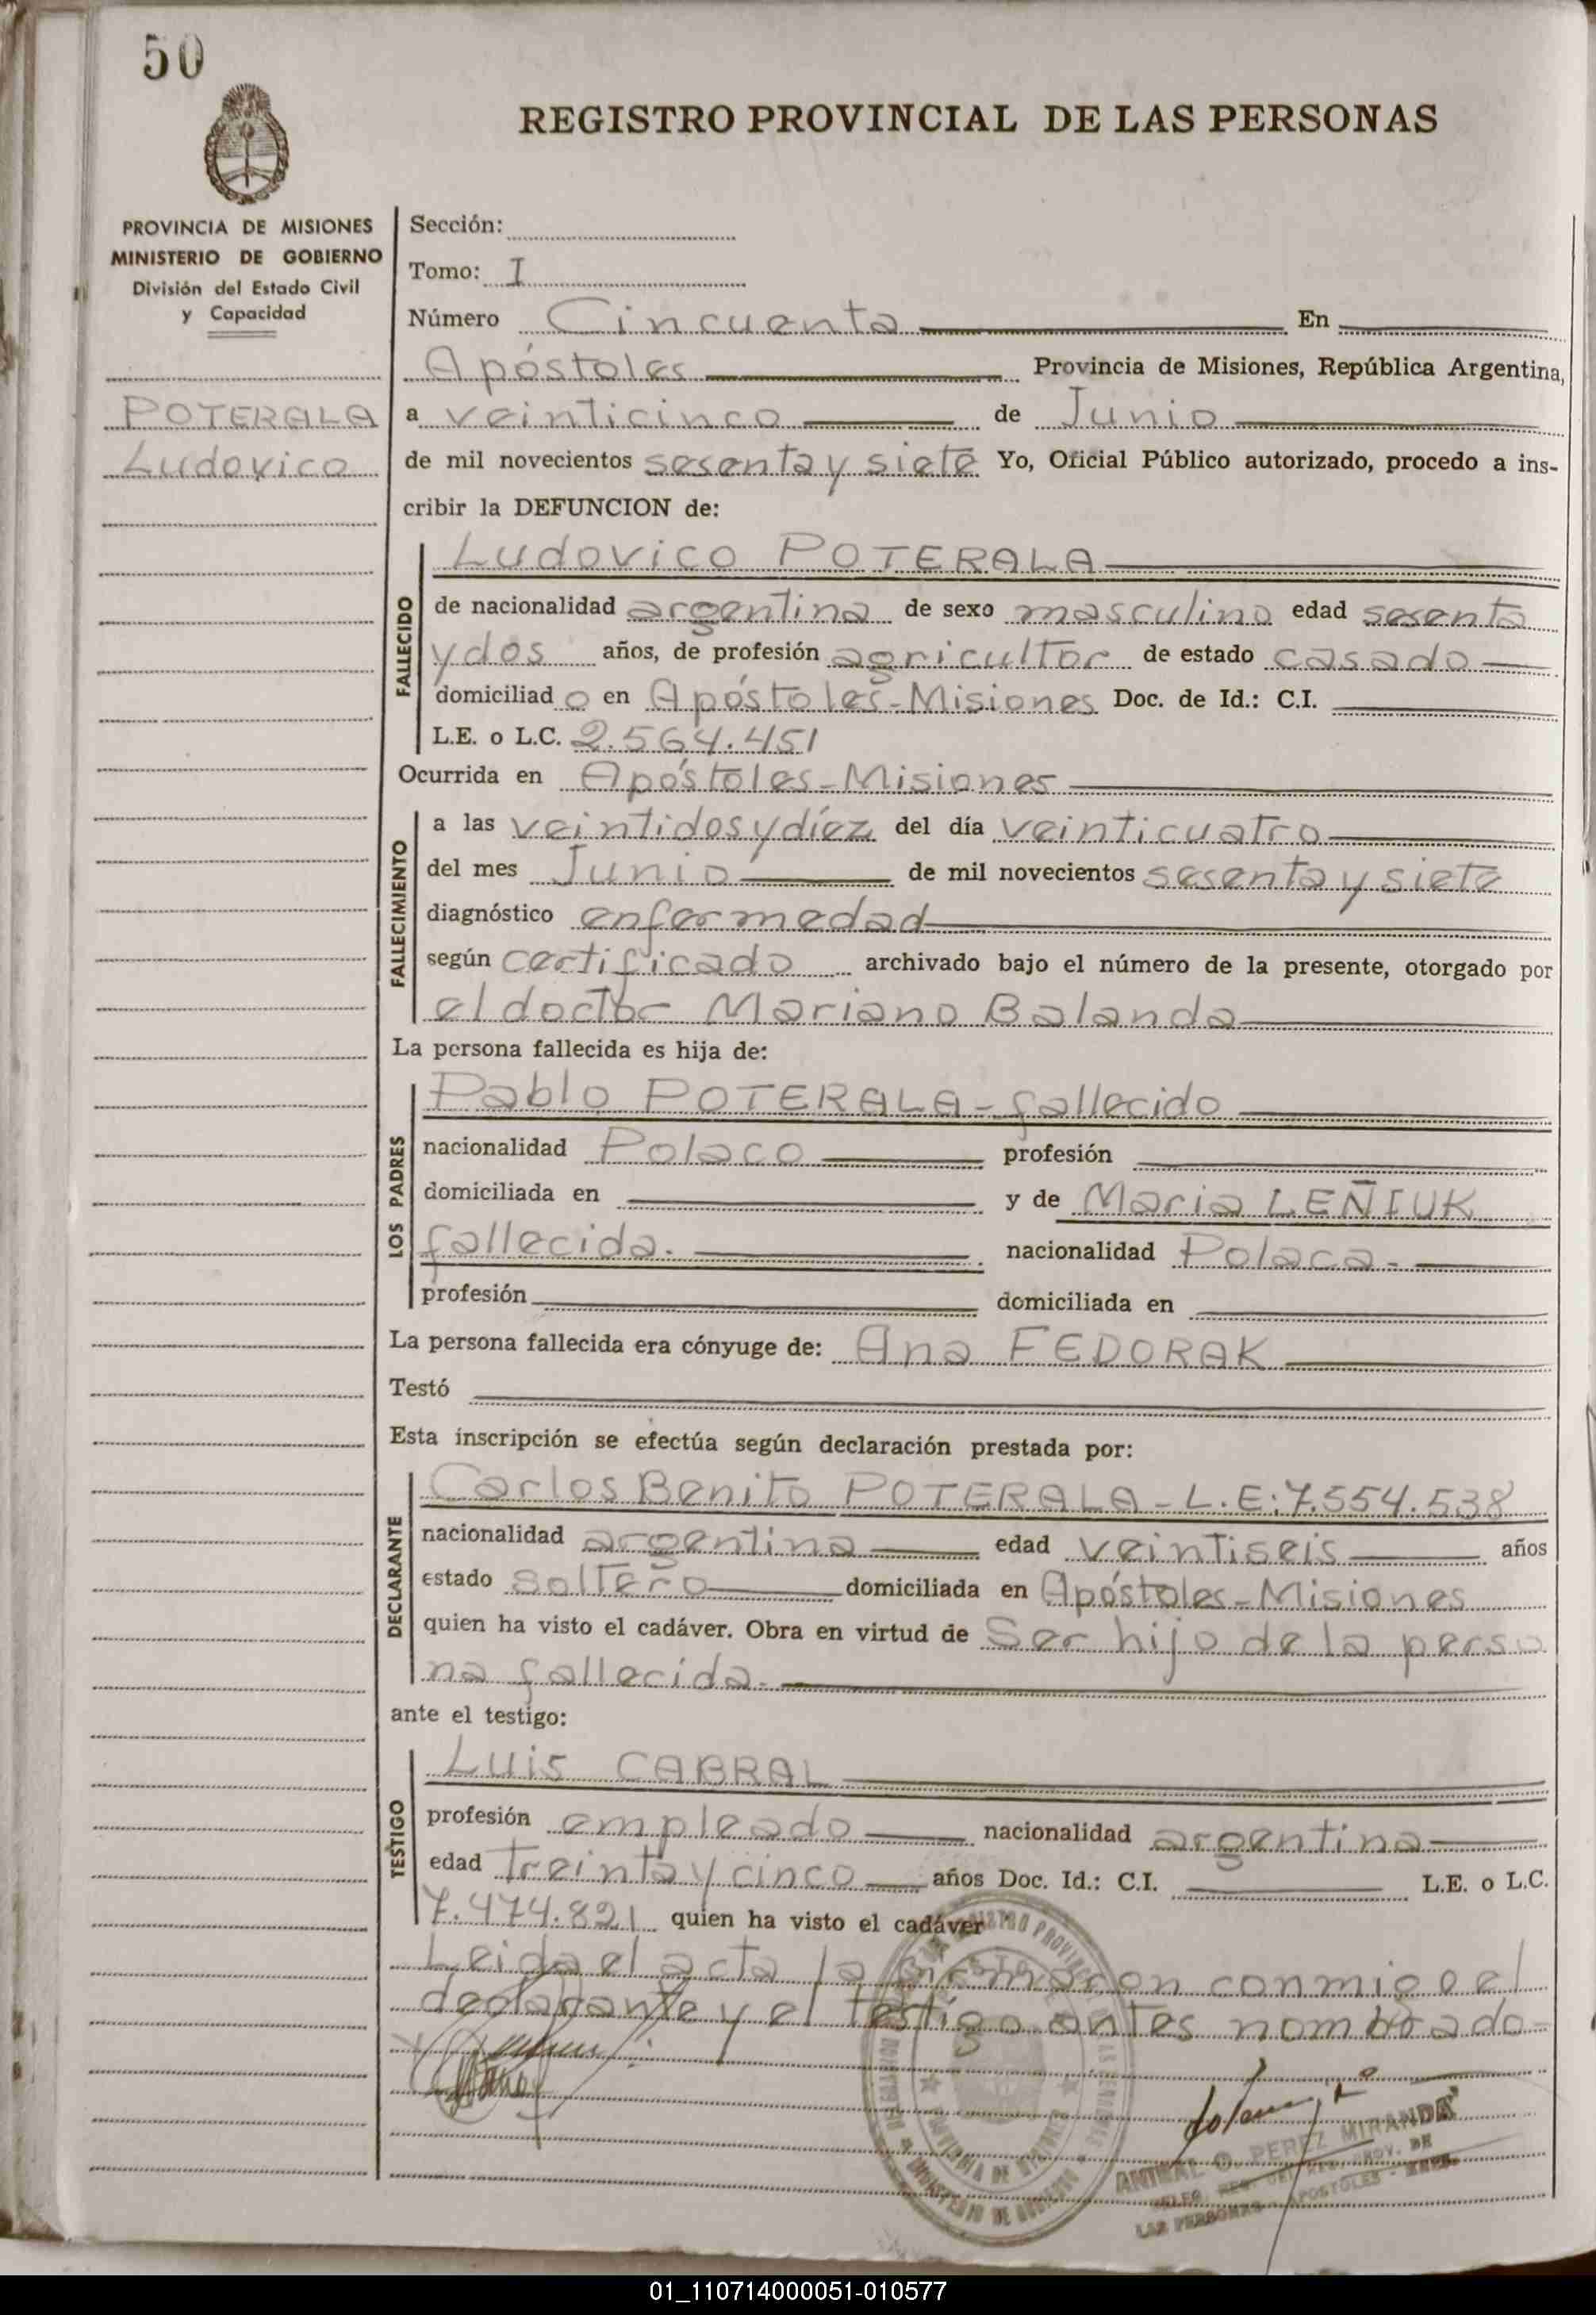 50
REGISTRO PROVINCIAL DE LAS PERSONAS
PROVINCIA DE MISIONES
MINISTERIO DE GOBIERNO
División del Estado Civil
y Capacidad
POTERALA
Ludovico
Sección:
Tomo: I
Número Cincuenta En
Apóstoles Provincia de Misiones, República Argentina,
a veinticinco de Junio
de mil novecientos sesenta y siete Yo, Oficial Público autorizado, procedo a ins-
cribir la DEFUNCION de:
FALLECIDO
Ludovico POTERALA
de nacionalidad argentina de sexo masculino edad sesenta
y dos años, de profesión agricultor de estado casado
domiciliad o en Apóstoles-Misiones Doc. de Id.: C.I.
L.E. o L.C. 2.564.451
Ocurrida en Apóstoles-Misiones
FALLECIMIENTO
a las veintidos y díez del día veinticuatro
del mes Junio de mil novecientos sesenta y siete
diagnóstico enfermedad
según certificado archivado bajo el número de la presente, otorgado por
el doctor Mariano Balanda
La persona fallecida es hija de:
LOS PADRES
Pablo POTERALA - fallecido
nacionalidad Polaco profesión
domiciliada en y de Maria LEÑIUK
fallecida. nacionalidad Polaca.-
profesión domiciliada en
La persona fallecida era cónyuge de: Ana FEDORAK
Testó
Esta inscripción se efectúa según declaración prestada por:
DECLARANTE
Carlos Benito POTERALA - L.E: 7.554.538
nacionalidad argentina edad veintiseis años
estado soltero domiciliada en Apóstoles-Misiones
quien ha visto el cadáver. Obra en virtud de Ser hijo de la perso
na fallecida.
ante el testigo:
TESTIGO
Luis CABRAL
profesión empleado nacionalidad argentina
edad treinta y cinco años Doc. Id.: C.I. L.E. o L.C.
7.474.821 quien ha visto el cadáver
Leida el acta la firmaron conmigo el
declarante y el testigo antes nombrado-
ANIBAL O. PEREZ MIRANDA
LAS PERSONAS - APOSTOLES
01_110714000051-010577